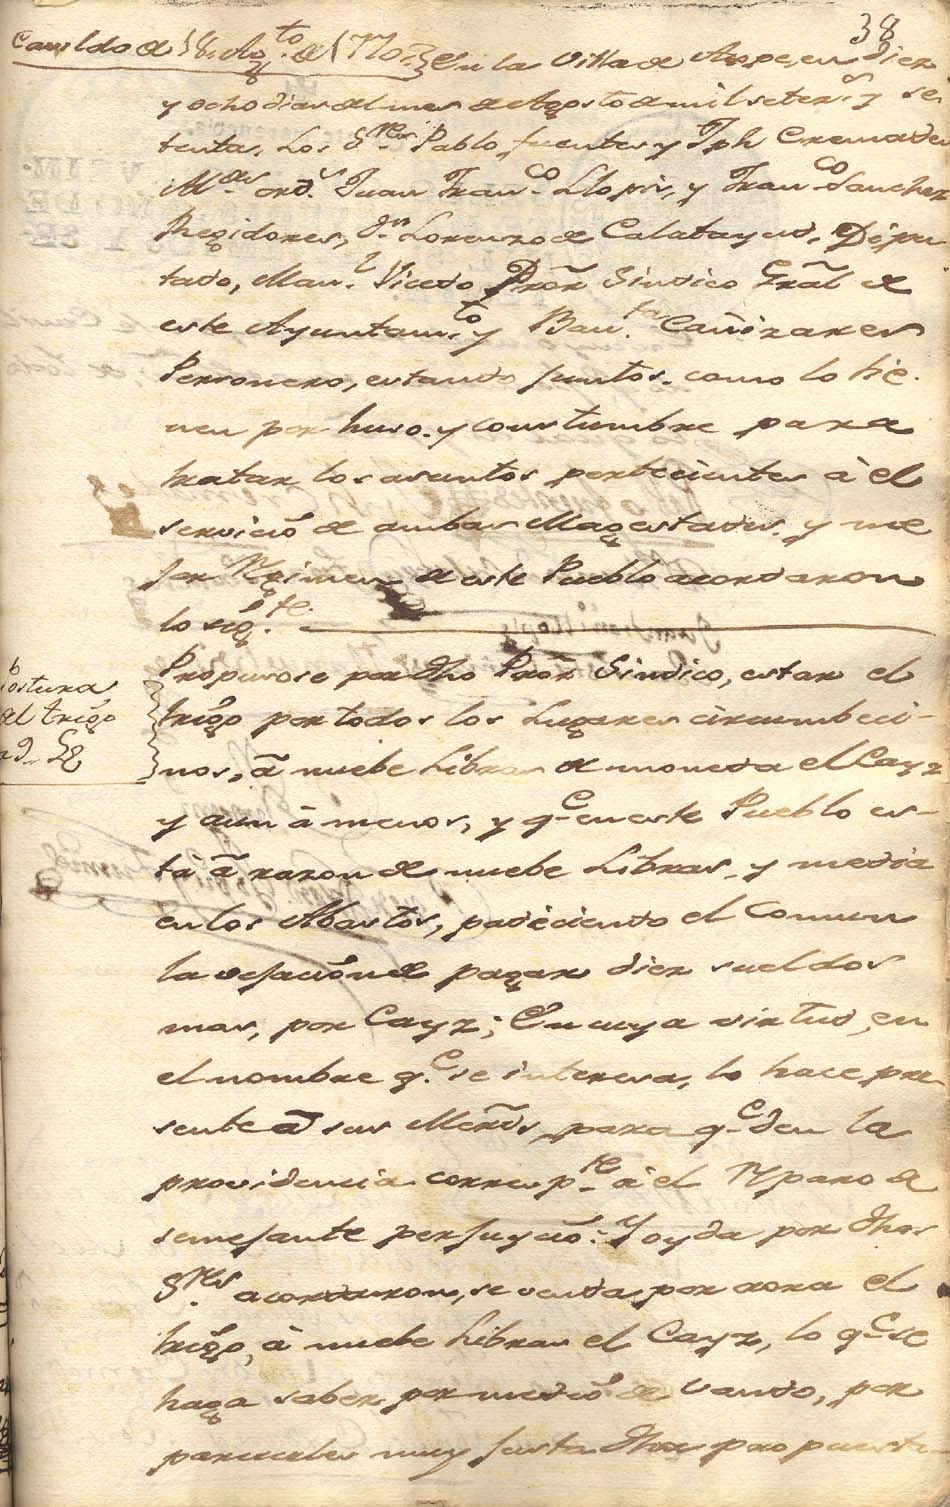 38
Cavildo de 18 Ag.to de 1770 En la Villa de Aspe, en diez
y ocho dias del mes de Agosto de mil seteз.s y se
tenta, Los S.res Pablo fuentes y Jph Cremades
Al.des ord.s Juan Fran.co Llopis, y Fran.co Sanchez
Regidores, d.n Lorenzo de Calatayud, Dipu
tado, Man.l Vicedo Prõr Sindico Grãl de
este Ayuntam.to y Bau.ta Cañizares
Personero, estando juntos como lo tie
nen por huso y constumbre para
tratar los asuntos pertecientes à el
servicio de ambas Magestades, y me
jor Regimen de este Pueblo acordaron
lo sig.te
Postura
del trigo
a 9 L
Propusose por dho Prõr Sindico, estar el
trigo por todos los Lugares circumbeci-
nos, à nuebe Libras de moneda el Cayz
y aun à menos, y q.e en este Pueblo es-
tà à razon de nuebe Libras, y media
en los Abastos, padeciendo el Comun
la vejacion de pagar diez sueldos
mas, por Cayz; En cuya virtud, en
el nombre q.e se interesa, lo hace pre-
sente à sus Merc̃ds, para q.e den la
providencia corresp.te à el Reparo de
semejante perjuycio: Y oyda por dhos
S.res acordaron, se venda por aora el
trigo, à nuebe Libras el Cayz, lo q.e se
haga saber por medio de vando, por
parecerles muy justa dha propuesta